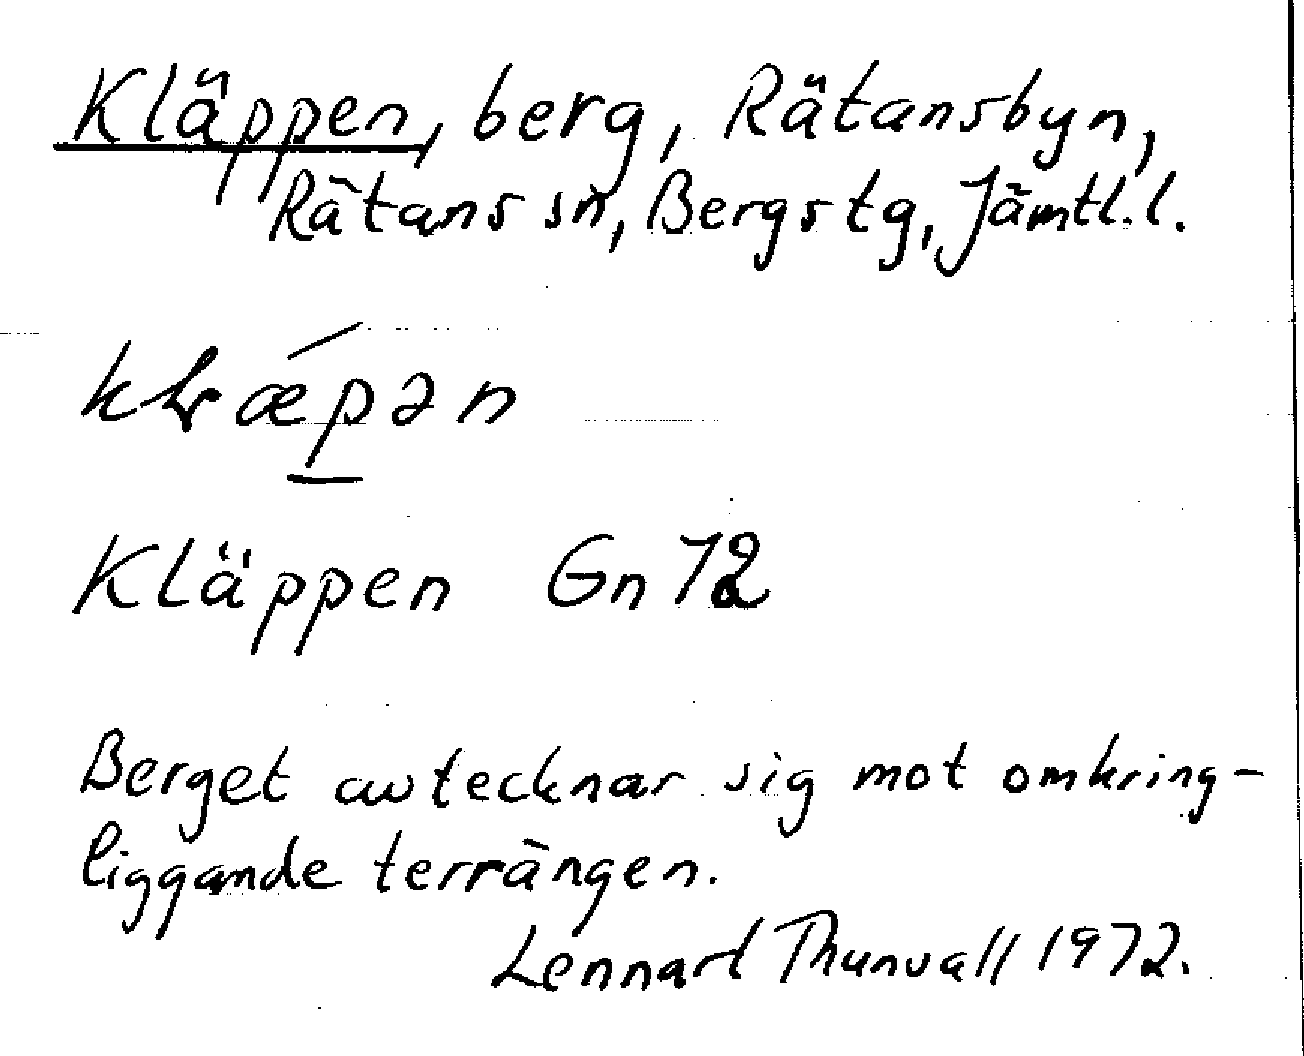 Kläppen, berg, Rätansbyn,
Rätans sn, Bergs tg, Jämtl. l.
Kläppen Gn 72
Berget avtecknar sig mot omkring-
liggande terrängen.
Lennart Thunvall 1972.